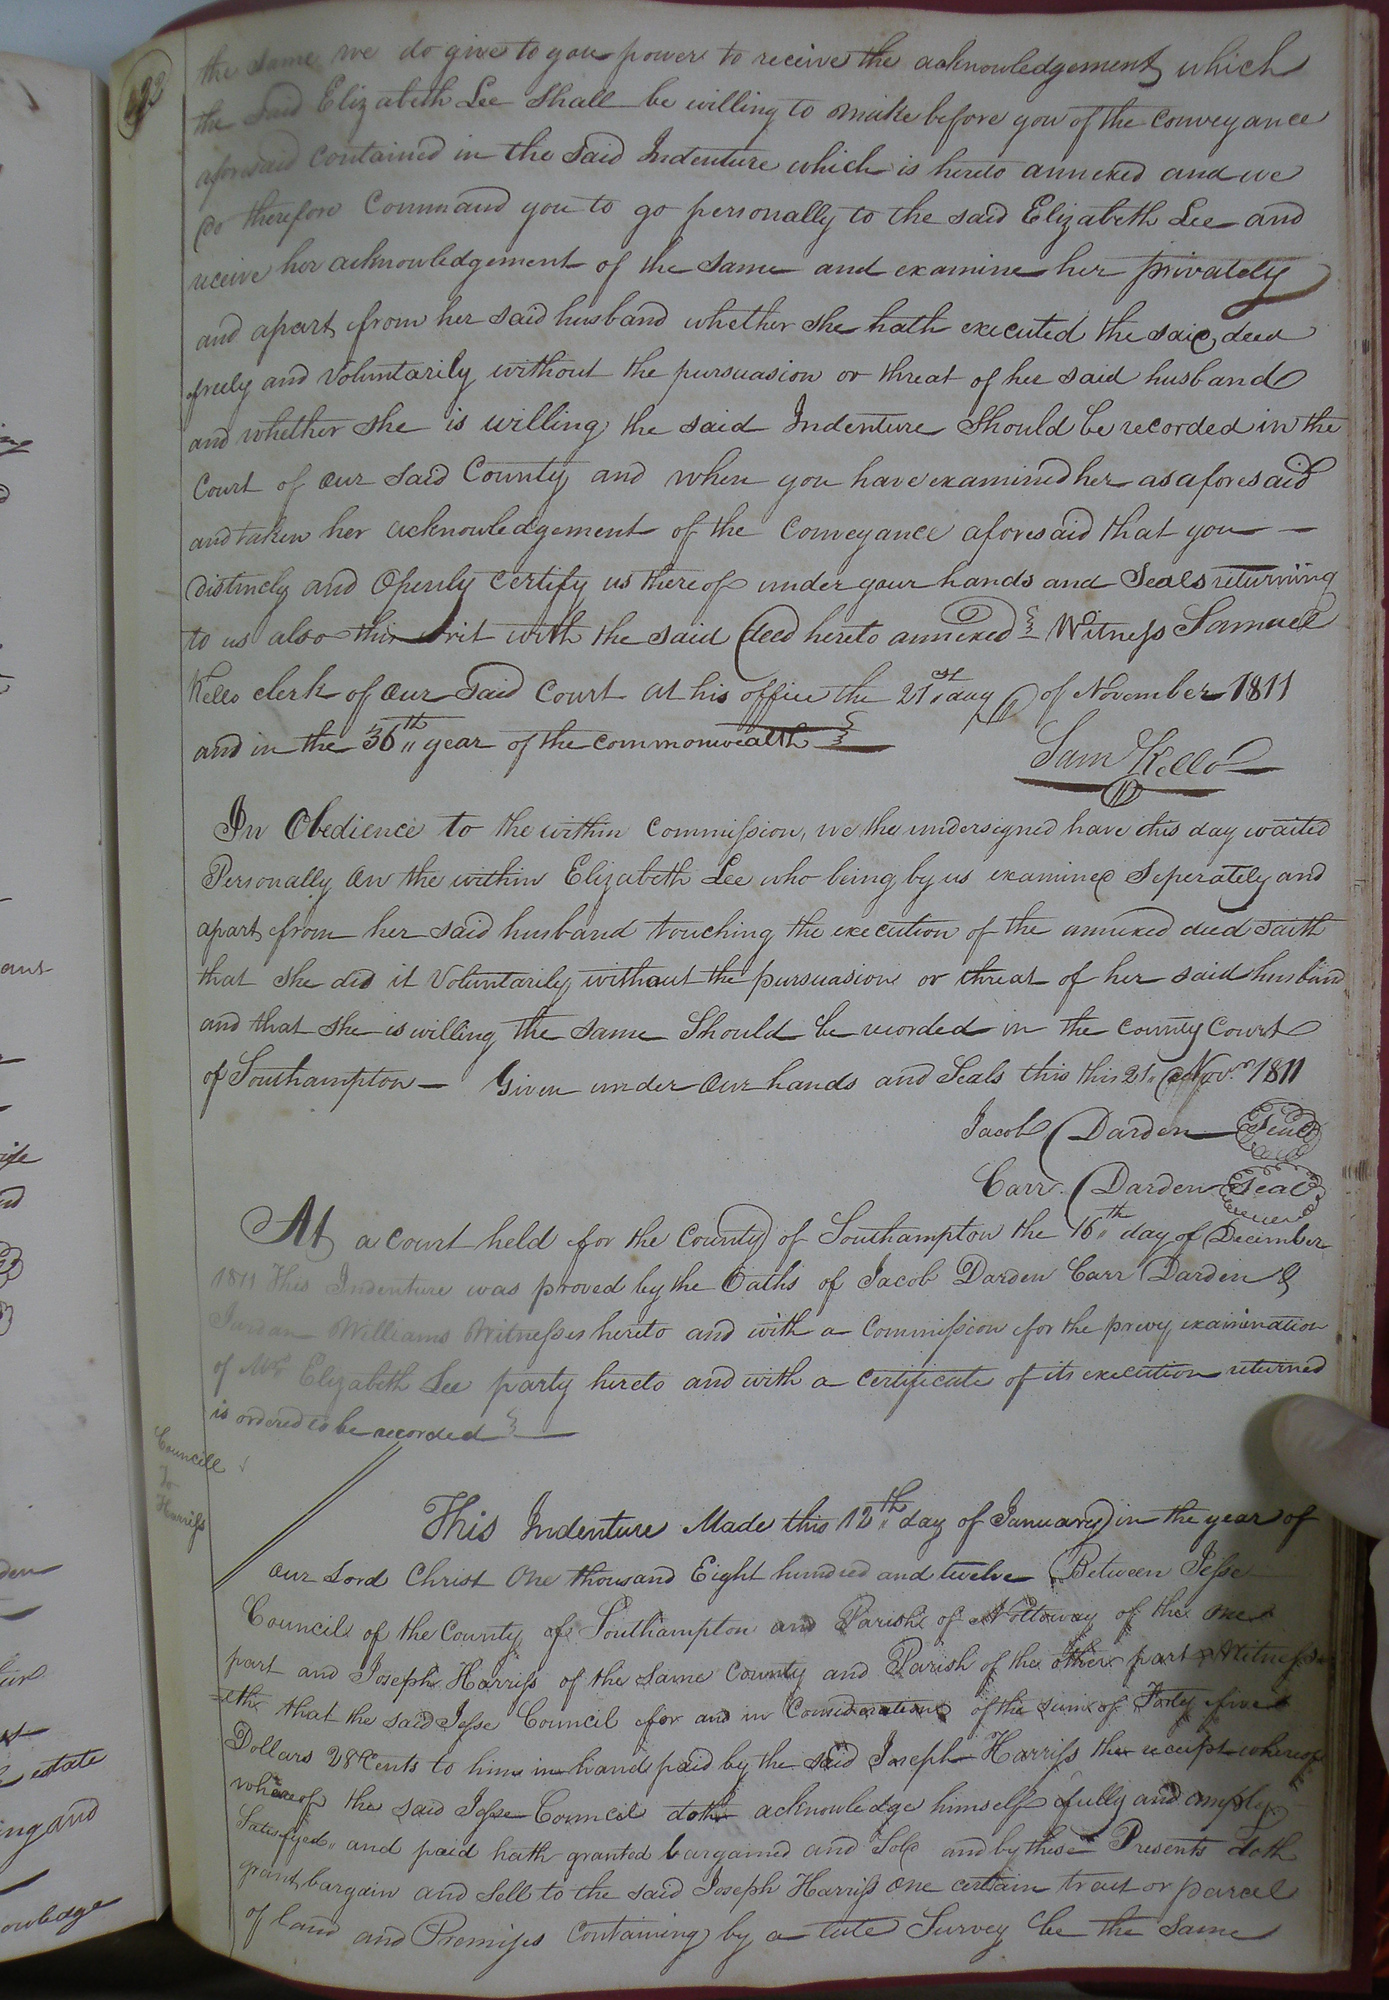 the same we do give to you power to receive the acknowledgement which
the said Elizabeth Lee Shall be willing to make before you of the Conveyance
aforesaid contained in the said Indenture which is hereto annexed and we
do therefore Command you to go personally to the said Elizabeth Lee and
receive her acknowledgement of the same and examine her privately
and apart from her said husband whether she hath executed the said deed
freely and Voluntarily without the pursuasion or threat of her said husband
and whether she is willing the said Indenture Should be recorded in the
Court of our said County and when you have examined her as aforesaid
and taken her acknowledgement of the Conveyance aforesaid that you —
distincly and Openly certify us thereof under your hands and Seals returning
to us also this writ with the said deed hereto annexed Witness Samuel
Kello clerk of our said Court at his office the 21st day of November 1811
and in the 36th year of the commonwealth
Sam Kello
In Obedience to the within Commission, we the undersigned have this day waited
Personally on the within Elizabeth Lee who being by us examined Seperately and
apart from her said husband touching the execution of the annexed deed saith
that she did it Voluntarily without the pursuasion or threat of her said husband
and that she is willing the same Should be recorded in the County Court
of Southampton — Given under our hands and Seals this this 21. Novr. 1811
Jacob Darden Seal
Carr Darden Seal
At a Court held for the County of Southampton the 16th day of December
1811 This Indenture was proved by the Oaths of Jacob Darden Carr Darden &
Jardan Williams Witnesses hereto and with a Commission for the privy examination
of Mrs Elizabeth Lee party hereto and with a certificate of its execution returned
is ordered to be recorded
Councill
To
Harriss
This Indenture Made this 12th day of January in the year of
our Lord Christ One thousand Eight hundred and twelve Between Jesse
Council of the County of Southampton and Parish of Nottoway of the one
part and Joseph Harriss of the same County and Parish of the other part Witness
eth that the said Jesse Council for and in Consideration of the sum of Forty five
Dollars 28 Cents to him in hand paid by the said Joseph Harriss the receipt whereof
whereof the said Jesse Council doth acknowledge himself fully and amply
Satisfyed and paid hath granted bargained and Sold and by these Presents doth
grant bargain and Sell to the said Joseph Harriss one certain tract or parcel
of land and Premises Containing by a late Survey be the Same